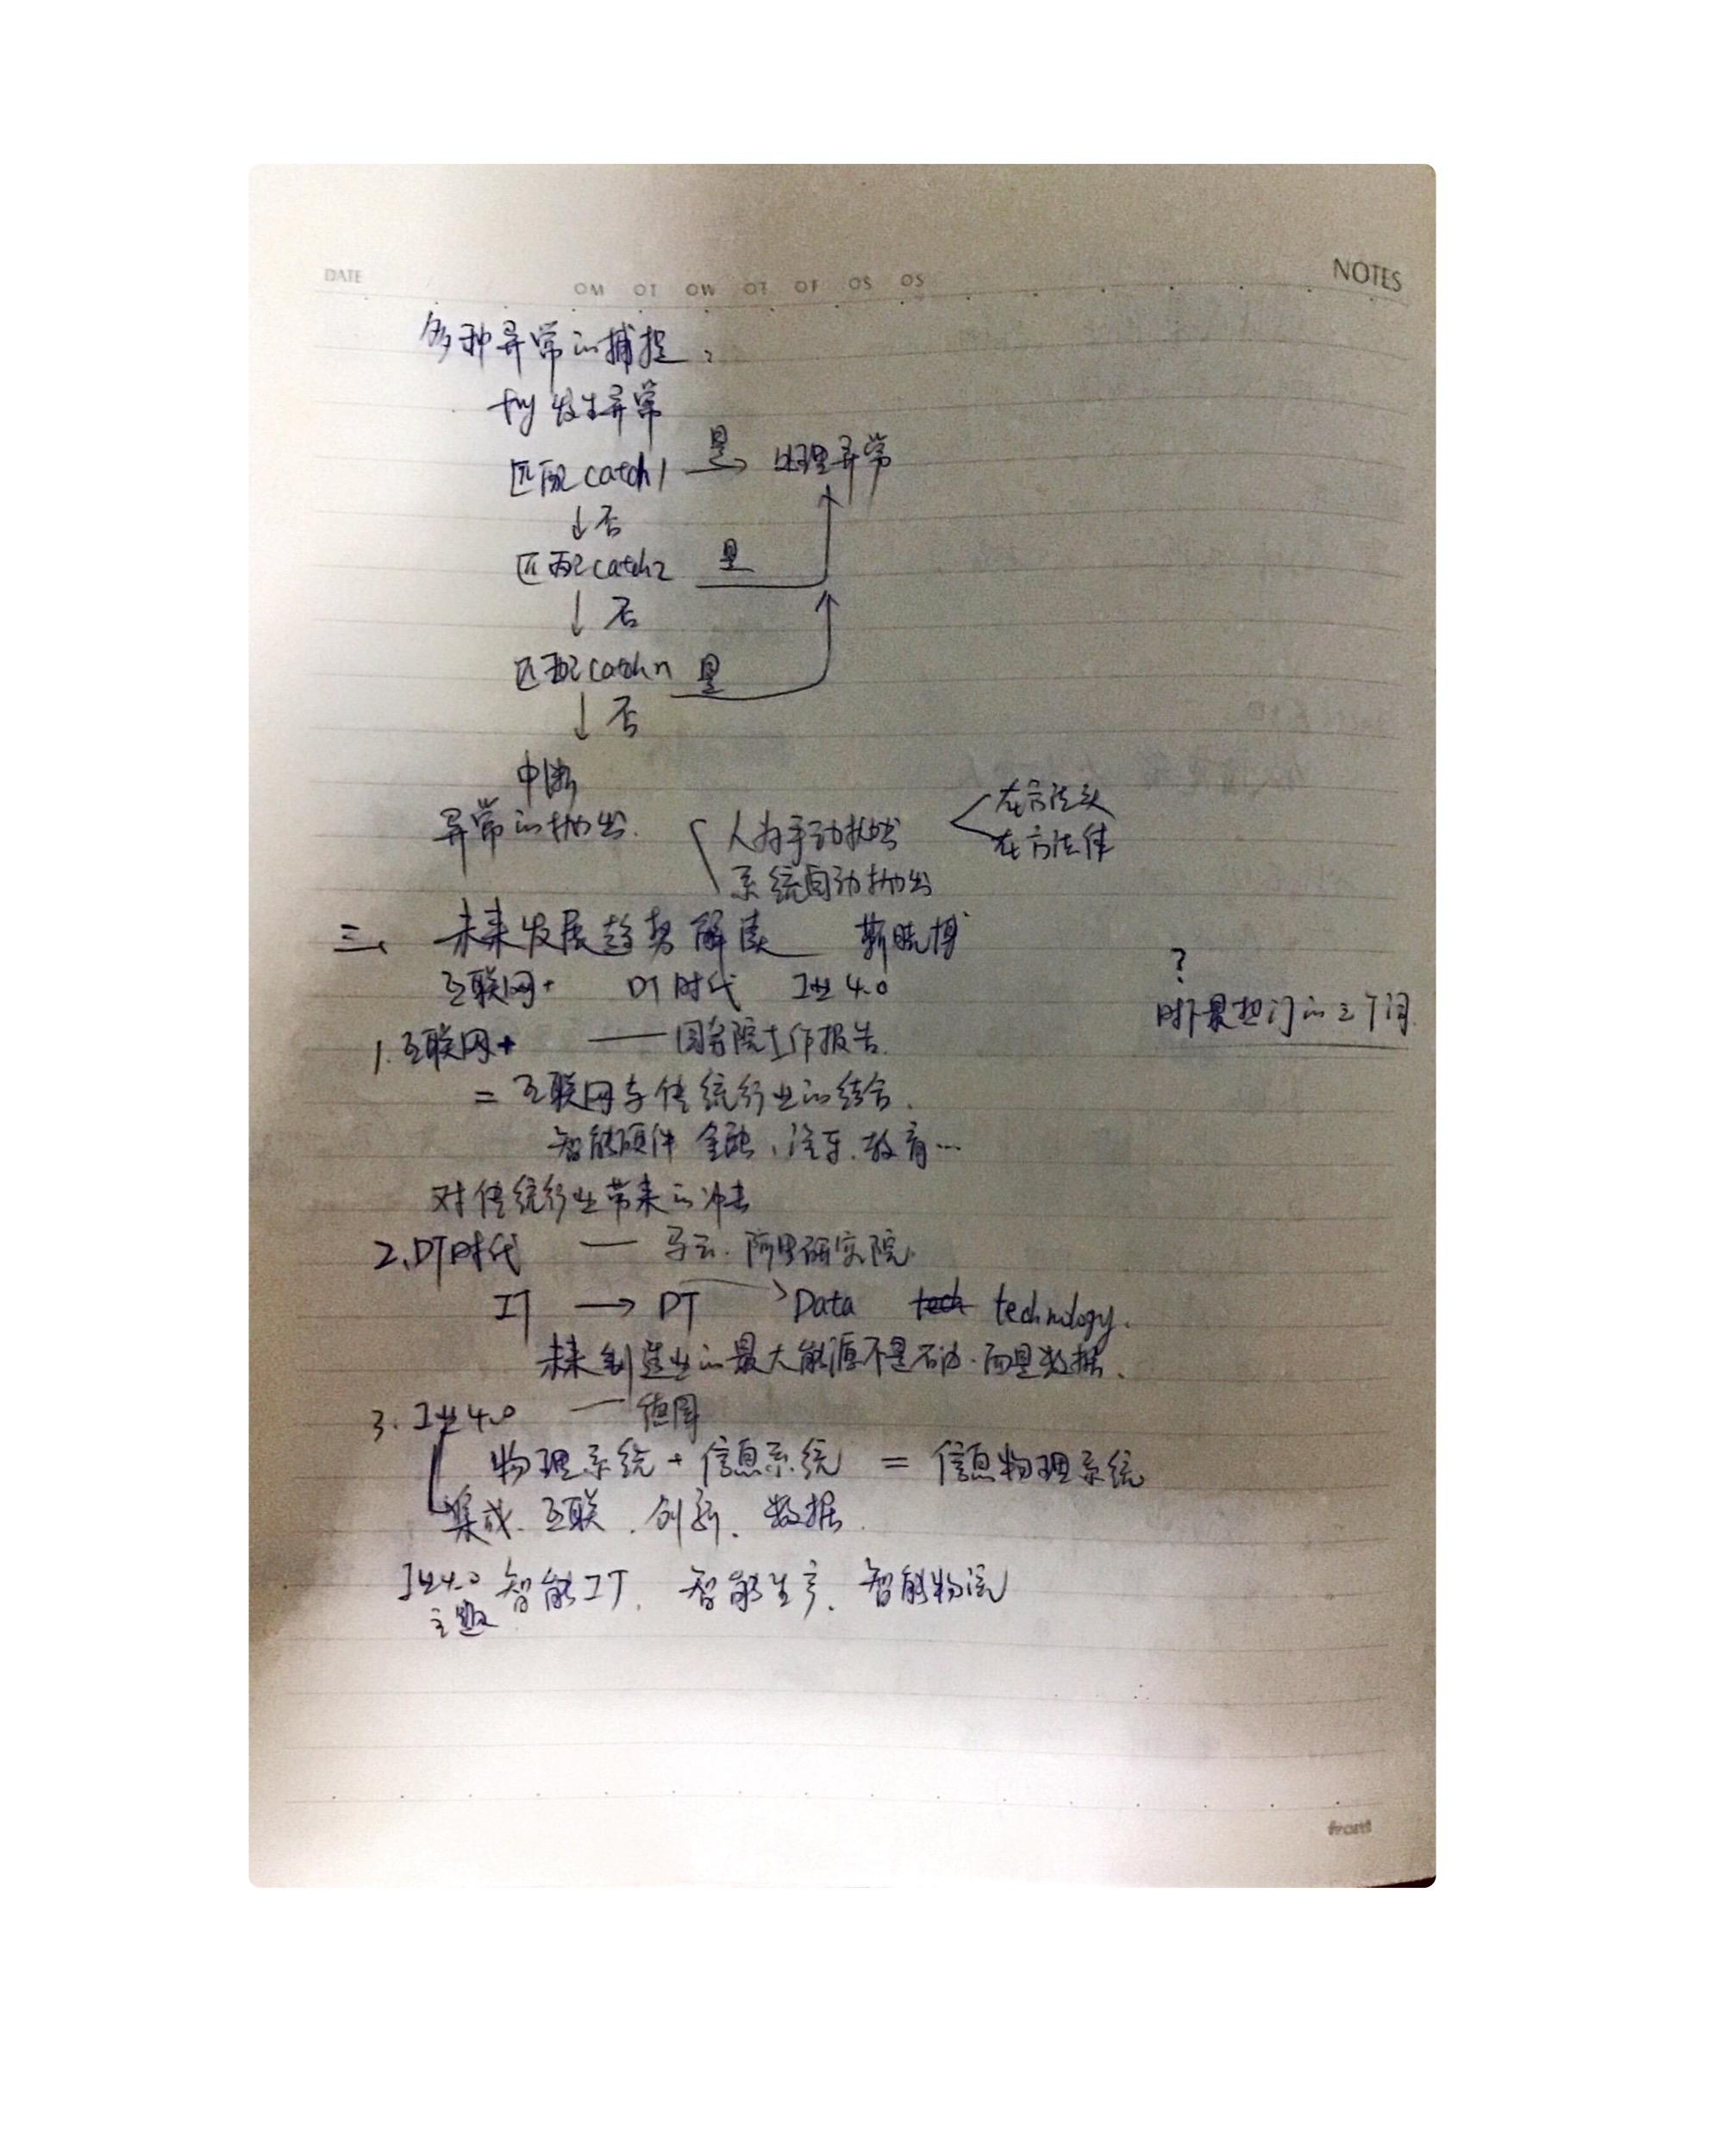 DATE
OM OT OW OT OF OS OS
NOTES
多种异常的捕捉：
try发生异常
匹配catch1 是 处理异常
否
匹配catch2 是
否
匹配catchn 是
否
中断
异常的抛出. 人为手动抛出 在方法头
在方法体
系统自动抛出
三、未来发展趋势解读 靳晓博
互联网+ DT时代 工业4.0
?
时下最热门的三个词
1.互联网+ ——国务院工作报告.
=互联网与传统行业的结合.
智能硬件 金融、汽车、教育…
对传统行业带来的冲击
2、DT时代 —— 马云. 阿里研究院
IT → DT Data tech technology.
未来制造业的最大能源不是石油.而是数据.
3. 工业4.0 ——德国
物理系统+信息系统 = 信息物理系统
集成、互联、创新、数据.
工业4.0 智能工厂、智能生产、智能物流
主题
front